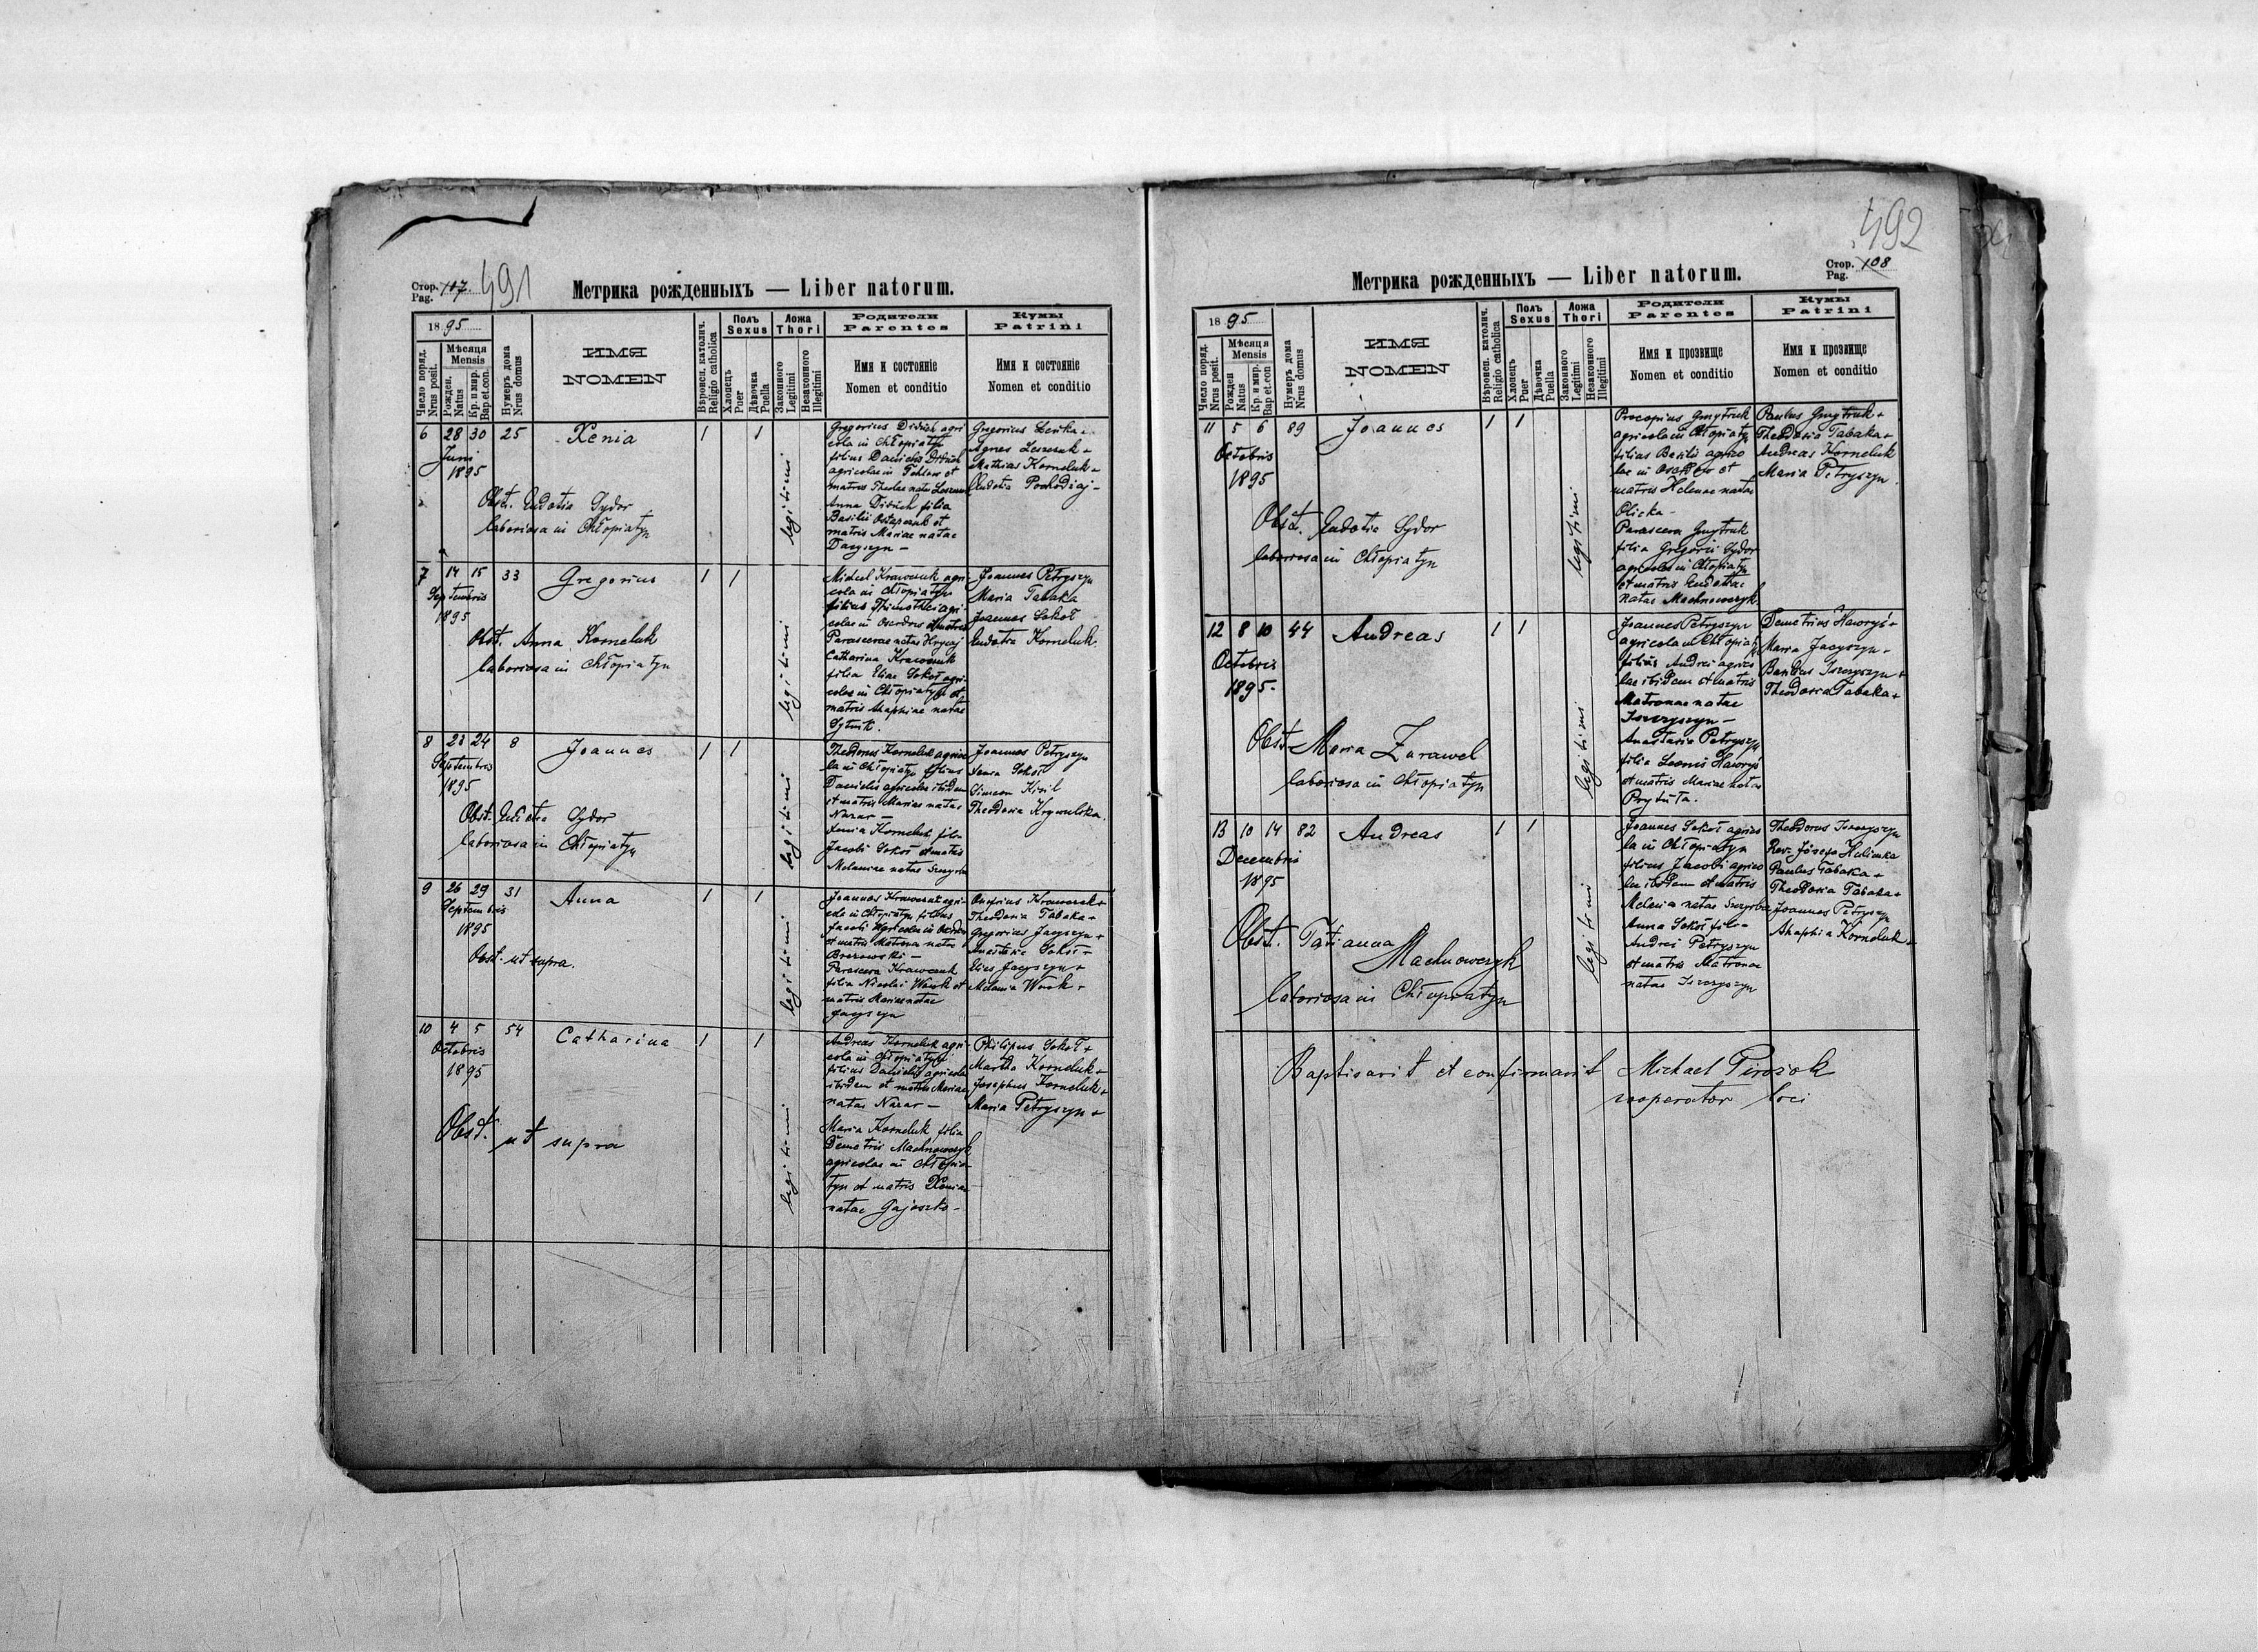 Стор. Pag. 107. 491
Метрика рожденныхъ — Liber natorum.
1895
Число поряд. Nrus posit.
Мѣсяця Mensis
Рожден. Natus
Кр. и мир. Bap.et.con.
Нумеръ дома Nrus domus
ИМЯ NOMEN
Вѣроисп. католич. Religio catholica
Полъ Sexus
Хлопець Puer
Дѣвочка Puella
Ложа Thori
Законного Legitimi
Незаконного Illegitimi
Родители Parentes
Имя и состоянiе
Nomen et conditio
Кумы Patrini
Имя и состоянiе
Nomen et conditio
6 28 30 25 Xenia 1 1
Juni
1895
Obst. Eudotia Sydor
laboriosa in Chłopiatyn
legitimi
Gregorius Diduch agri
cola in Chłopiatyn
filius Danielis Diduch
agricolae in et
matris Theclae natae
Anna Diduch filia
Basilii Ostapczuk et
matris Mariae natae
Dacyszyn —
Gregorius
Agnes Leszczuk +
Mathias Korneluk +
Eudotia
7 14 15 33 Gregorius 1 1
Septembris
1895
Obst. Anna Korneluk
laboriosa in Chłopiatyn
legitimi
Michael Krawczuk agri-
cola in Chłopiatyn
filius Thimothei agri-
colae in Oserdow et matris
Parascevae natae Hrycaj
Catharina Krawczuk
filia Eliae Sokoł agri-
colae in Chłopiatyn et
matris Ahaphiae natae
Joannes Petryszyn
Maria Tabaka
Joannes Sokoł
Eudotia Korneluk
8 23 24 8 Joannes 1 1
Septembris
1895
Obst. Sydor
laboriosa in Chłopiatyn
legitimi
Theodorus Korneluk agrico
la in Chłopiatyn filius
Danielis agricolae ibidem
et matris Mariae natae
Nazar —
Xenia Korneluk filia
Jacobi Sokoł et matris
Melaniae natae
Joannes Petryszyn
Sokoł
Simeon
Theodosia
9 26 29 31 Anna 1 1
Septembris
1895
Obst. ut supra.
legitimi
Joannes Krawczuk agri-
cola in Chłopiatyn filius
Jacobi agricolae in
et matris Matrona natae
Brzozowski —
Parasceva Krawczuk
filia Nicolai et
matris Mariae natae
Jacyszyn
Onufrius Krawczuk +
Theodosia Tabaka +
Gregorius Jacyszyn +
Anastasia Sokoł +
Elias Jacyszyn +
Melania
10 4 5 54 Catharina 1 1
Octobris
1895
Obst. ut supra
legitimi
Andreas Korneluk agri-
cola in Chłopiatyn
filius Danielis agricolae
ibidem et matris Mariae
natae Nazar —
Maria Korneluk filia
Demetrii Machnowczyk
agricolae in Chłopia-
tyn et matris Xeniae
natae Gajoszko —
Philipus Sokoł +
Martha Korneluk +
Josephus Korneluk +
Maria Petryszyn +
492
Стор. Pag. 108
Метрика рожденныхъ — Liber natorum.
1895
Число поряд. Nrus posit.
Мѣсяця Mensis
Рожден Natus
Кр. и мир. Bap.et.con
Нумеръ дома Nrus domus
ИМЯ NOMEN
Вѣроисп. католич. Religio catholica
Полъ Sexus
Хлопець Puer
Дѣвочка Puella
Ложа Thori
Законного Legitimi
Незаконного Illegitimi
Родители Parentes
Имя и прозвище
Nomen et conditio
Кумы Patrini
Имя и прозвище
Nomen et conditio
11 5 6 89 Joannes 1 1
Octobris
1895
Obst. Eudotia Sydor
laboriosa in Chłopiatyn
legitimi
Procopius Gmytruk
agricola in Chłopiatyn
filius Basilii agrico
lae in Oserdow et
matris Helenae natae
Olicka —
Parasceva Gmytruk
filia Gregorii Sydor
agricolae in Chłopiatyn
et matris Eudotiae
natae Machnowczyk.
Paulus Gmytruk +
Theodosia Tabaka +
Andreas Korneluk
Maria Petryszyn.
12 8 10 44 Andreas 1 1
Octobris
1895.
Obst. Maria Żurawel
laboriosa in Chłopiatyn
legitimi
Joannes Petryszyn
agricola in Chłopiatyn
filius Andrei agrico
lae ibidem et matris
Matronae natae
Iszczyszyn —
Anastasia Petryszyn
filia Leonis Haworyś
et matris Mariae natae
Prytuła.
Demetrius Haworyś +
Maria Jacyszyn +
Basilius Iszczyszyn +
Theodosia Tabaka +
13 10 14 82 Andreas 1 1
Decembris
1895
Obst. Tatianna
Machnowczyk
laboriosa in Chłopiatyn
legitimi
Joannes Sokoł agrico
la in Chłopiatyn
filius Jacobi agrico
lae ibidem et matris
Melania natae
Anna Sokoł filia
Andrei Petryszyn
et matris Matronae
natae Iszczyszyn
Theodorus Iszczyszyn
Rev. Josepa
Paulus Tabaka +
Theodosia Tabaka +
Joannes Petryszyn
Ahaphia Korneluk +
Baptisavit et confirmavit Michael Pirożok
cooperator loci